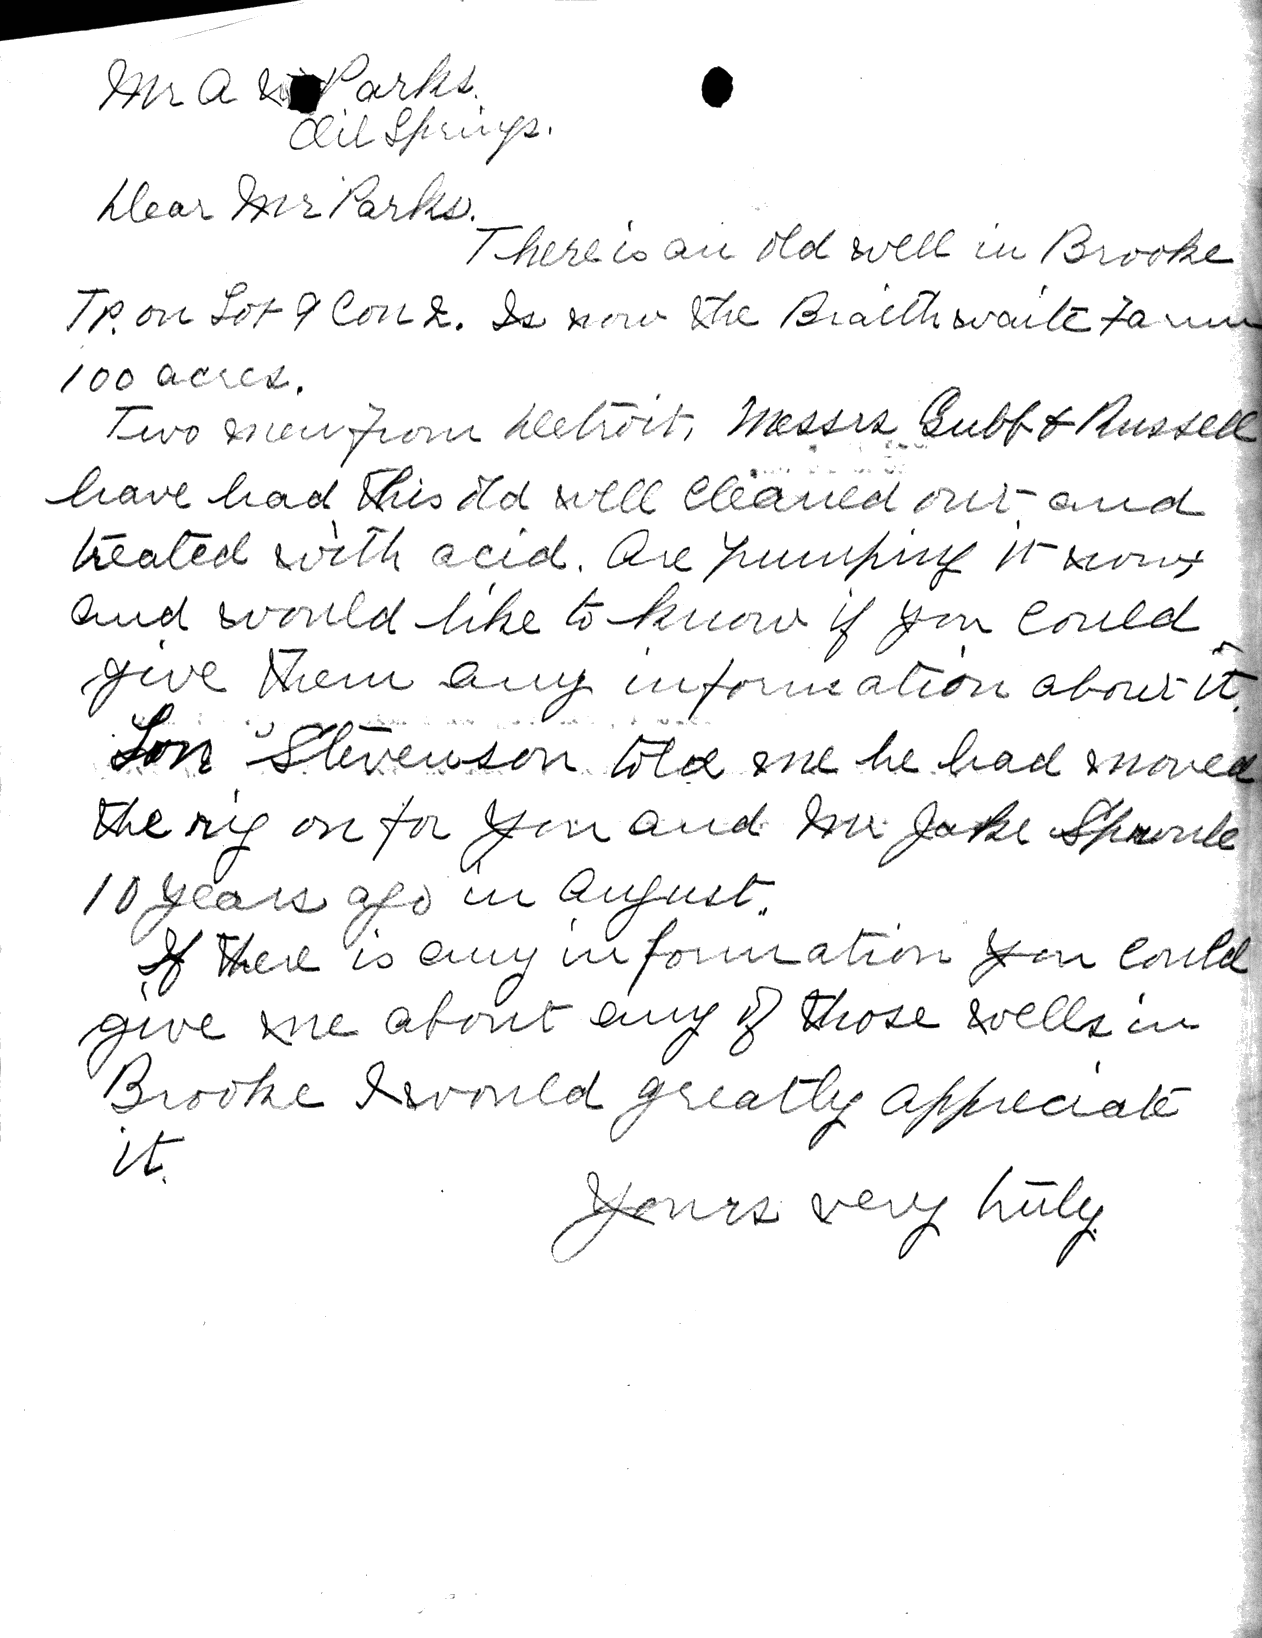 Mr A Parks.
Oil Springs.
Dear Mr Parks.
There is an old well in Brooke
Tp. on Lot 9 Con 2. Is now the Braithwaite Farm
100 acres.
Two men from Detroit, Messrs Gubb & Russell
have had this old well cleaned out and
treated with acid. Are pumping it now,
and would like to know if you could
give them any information about it.
Lon Stevenson told me he had moved
the rig on for you and Mr. Jake Sproule
10 years ago in August.
If there is any information you could
give me about any of those wells in
Brooke I would greatly appreciate
it.
Yours very truly